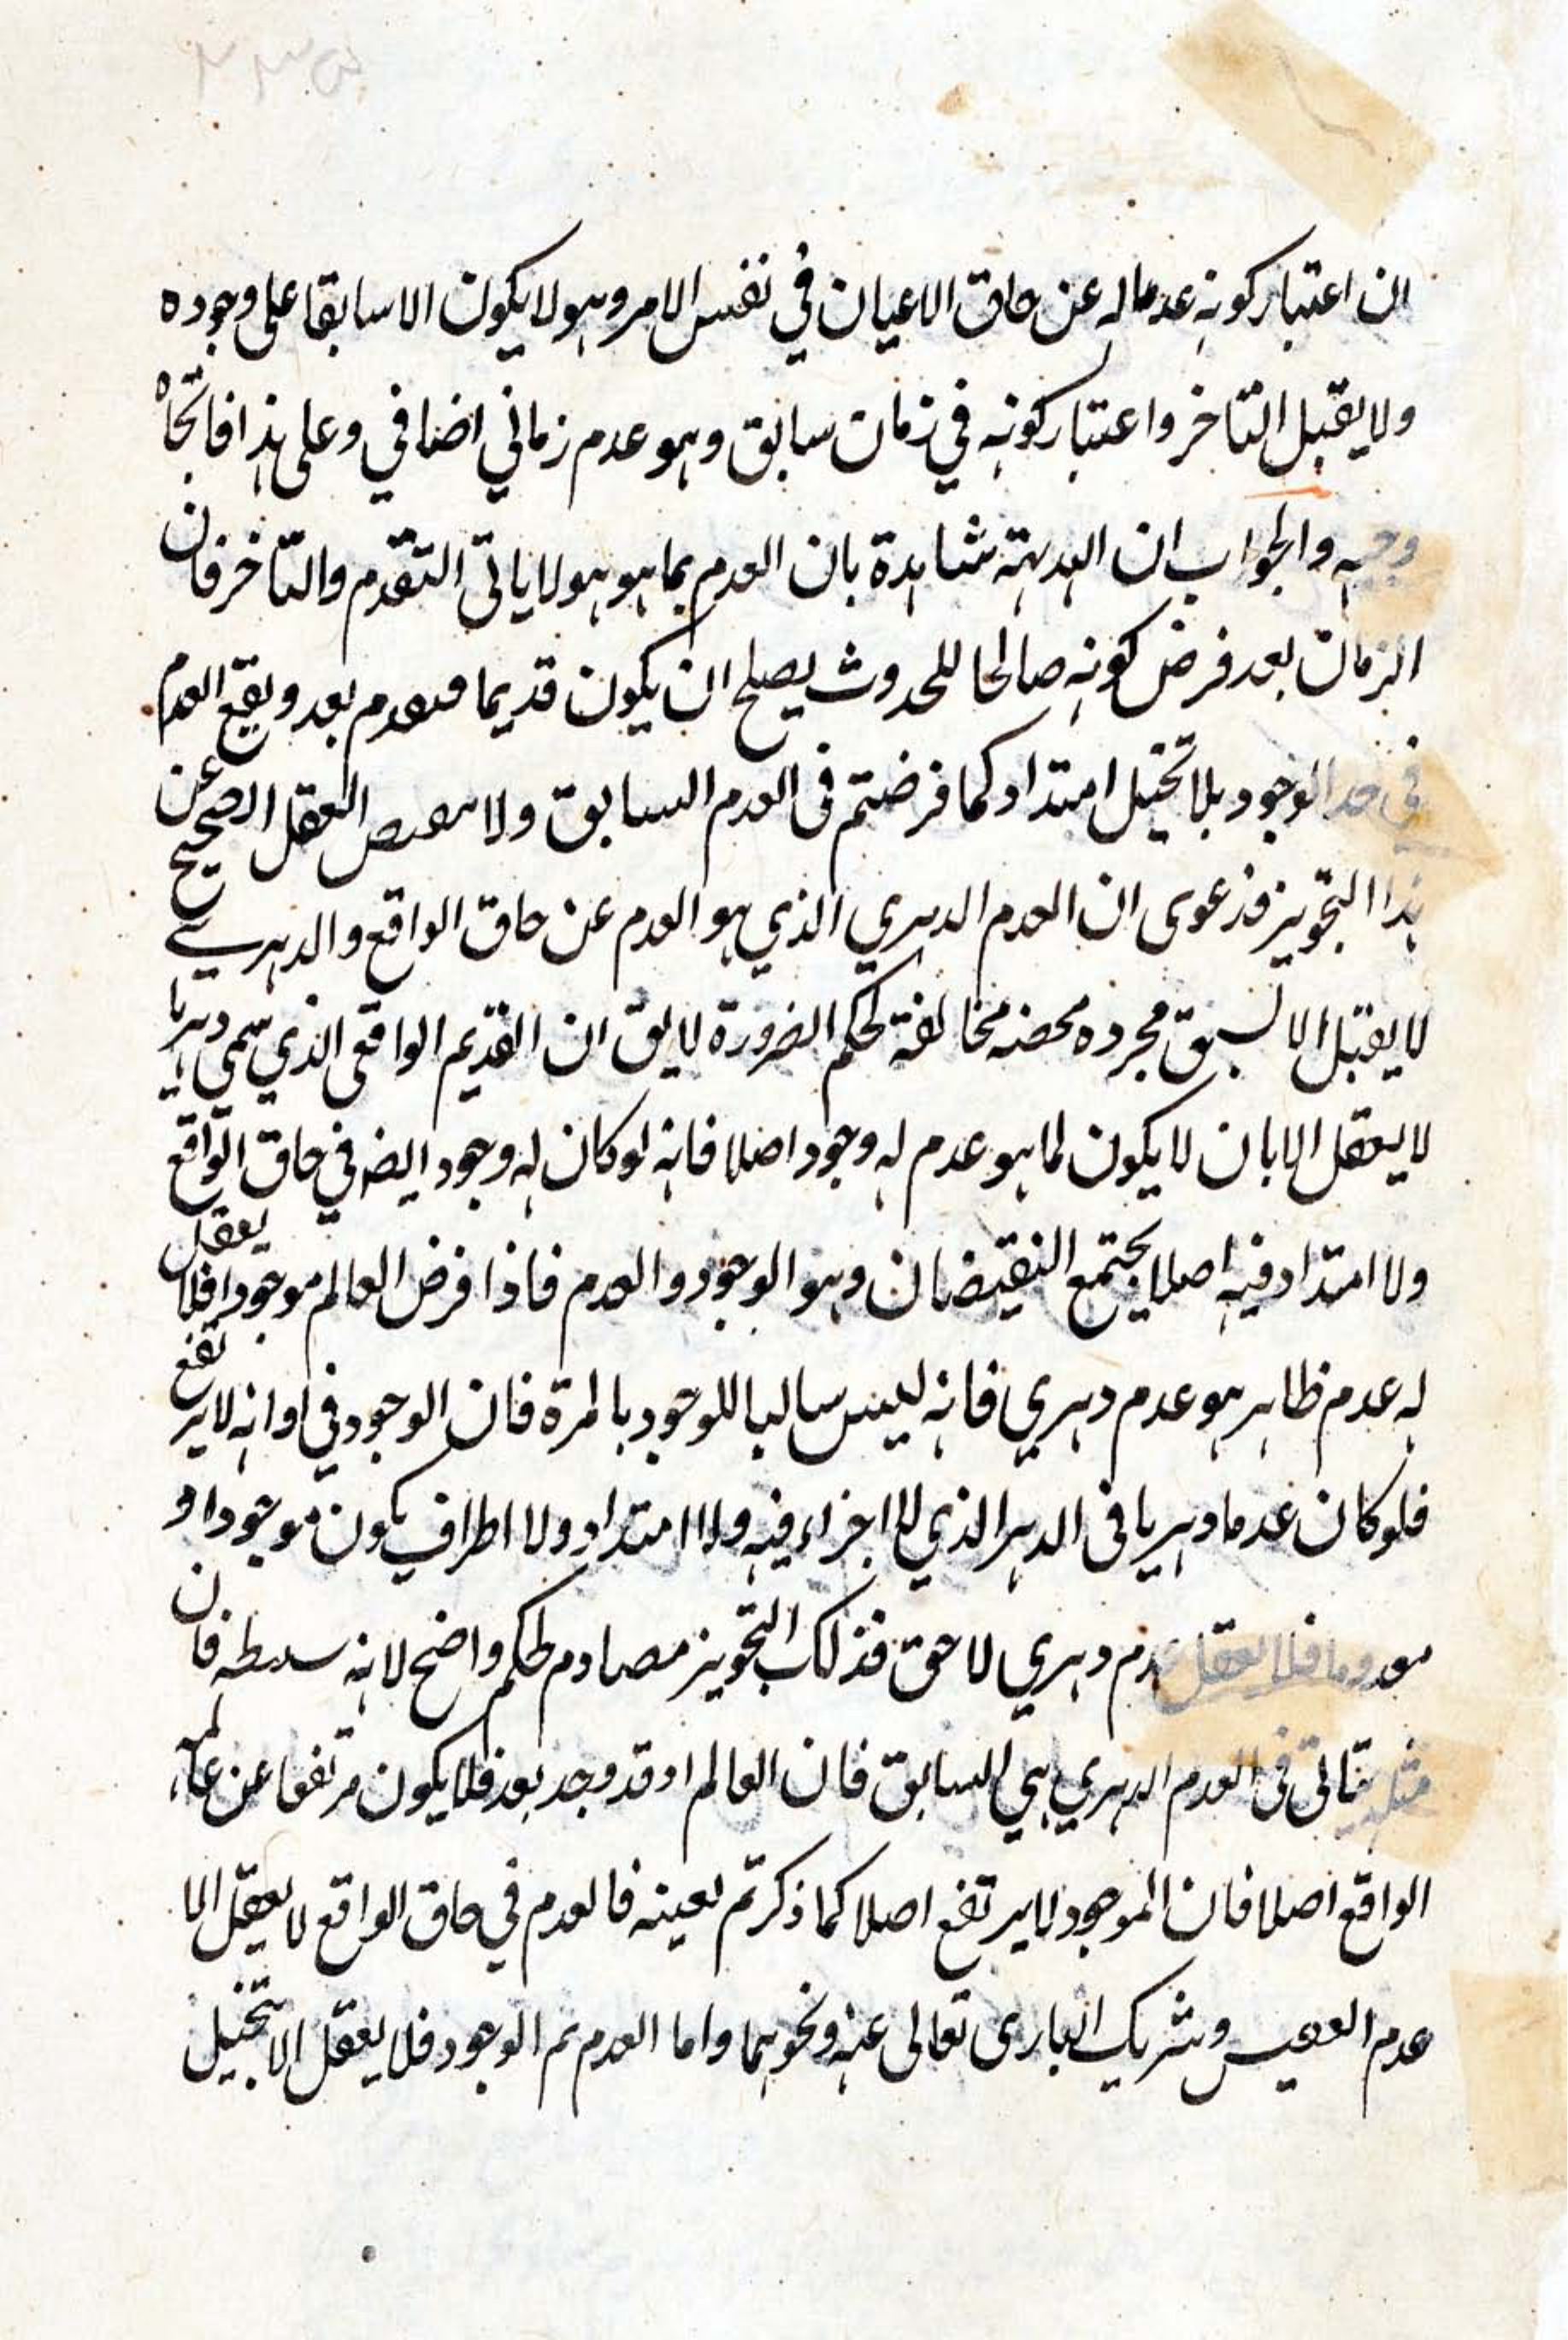 ان اعتبار كونه عدما له عن حاق الاعيان في نفس الامر وهو لا يكون الا سابقا على وجوده
ولا يقبل التاخر واعتبار كونه في زمان سابق وهو عدم زماني اضافي وعلى هذا فاتجاه
وجيه والجواب ان البديهة شاهدة بان العدم بما هو هو لا يابى التقدم والتاخر فان
الزمان بعد فرض كونه صالحا للحدوث يصلح ان يكون قديما فيعدم بعد ويقع العدم
في حد الوجود بلا تخيل امتداد كما فرضتم في العدم السابق ولا العقل الصحيح عن
هذا التجويز فدعوى ان العدم الدهري الذي هو العدم عن حاق الواقع والدهر
لا يقبل الا السبق مجرده محضه مخالفة لحكم الضرورة لا يق ان القديم الواقعى الذي سمي دهريا
لا يعقل الا بان لا يكون لما هو عدم له وجود اصلا فانه لو كان له وجود ايضه في حاق الواقع
ولا امتداد فيه اصلا يجتمع النقيضان وهو الوجود والعدم فاذا فرض العالم موجودا فلا يعقل
له عدم ظاهر هو عدم دهري فانه ليس سالبا للوجود بالمرة فان الوجود في اوانه لا يرتفع
فلو كان عدما دهريا في الدهر الذي لا اجزاء فيه ولا امتداد ولا اطراف يكون موجودا و
معدوما فلا يعقل عدم دهري لاحق فذلك التجويز مصادم لحكم واضح لانه فان
مثله يتاتى في العدم الدهري السابق فان العالم اذ قد وجد بعد فلا يكون مرتفعا عن عالم
الواقع اصلا فان الموجود لا يرتفع اصلا كما ذكرتم بعينه فالعدم في حاق الواقع لا يعقل الا
عدم وشريك البارى تعالى عنه ونحوهما واما العدم ثم الوجود فلا يعقل الا بتخيل